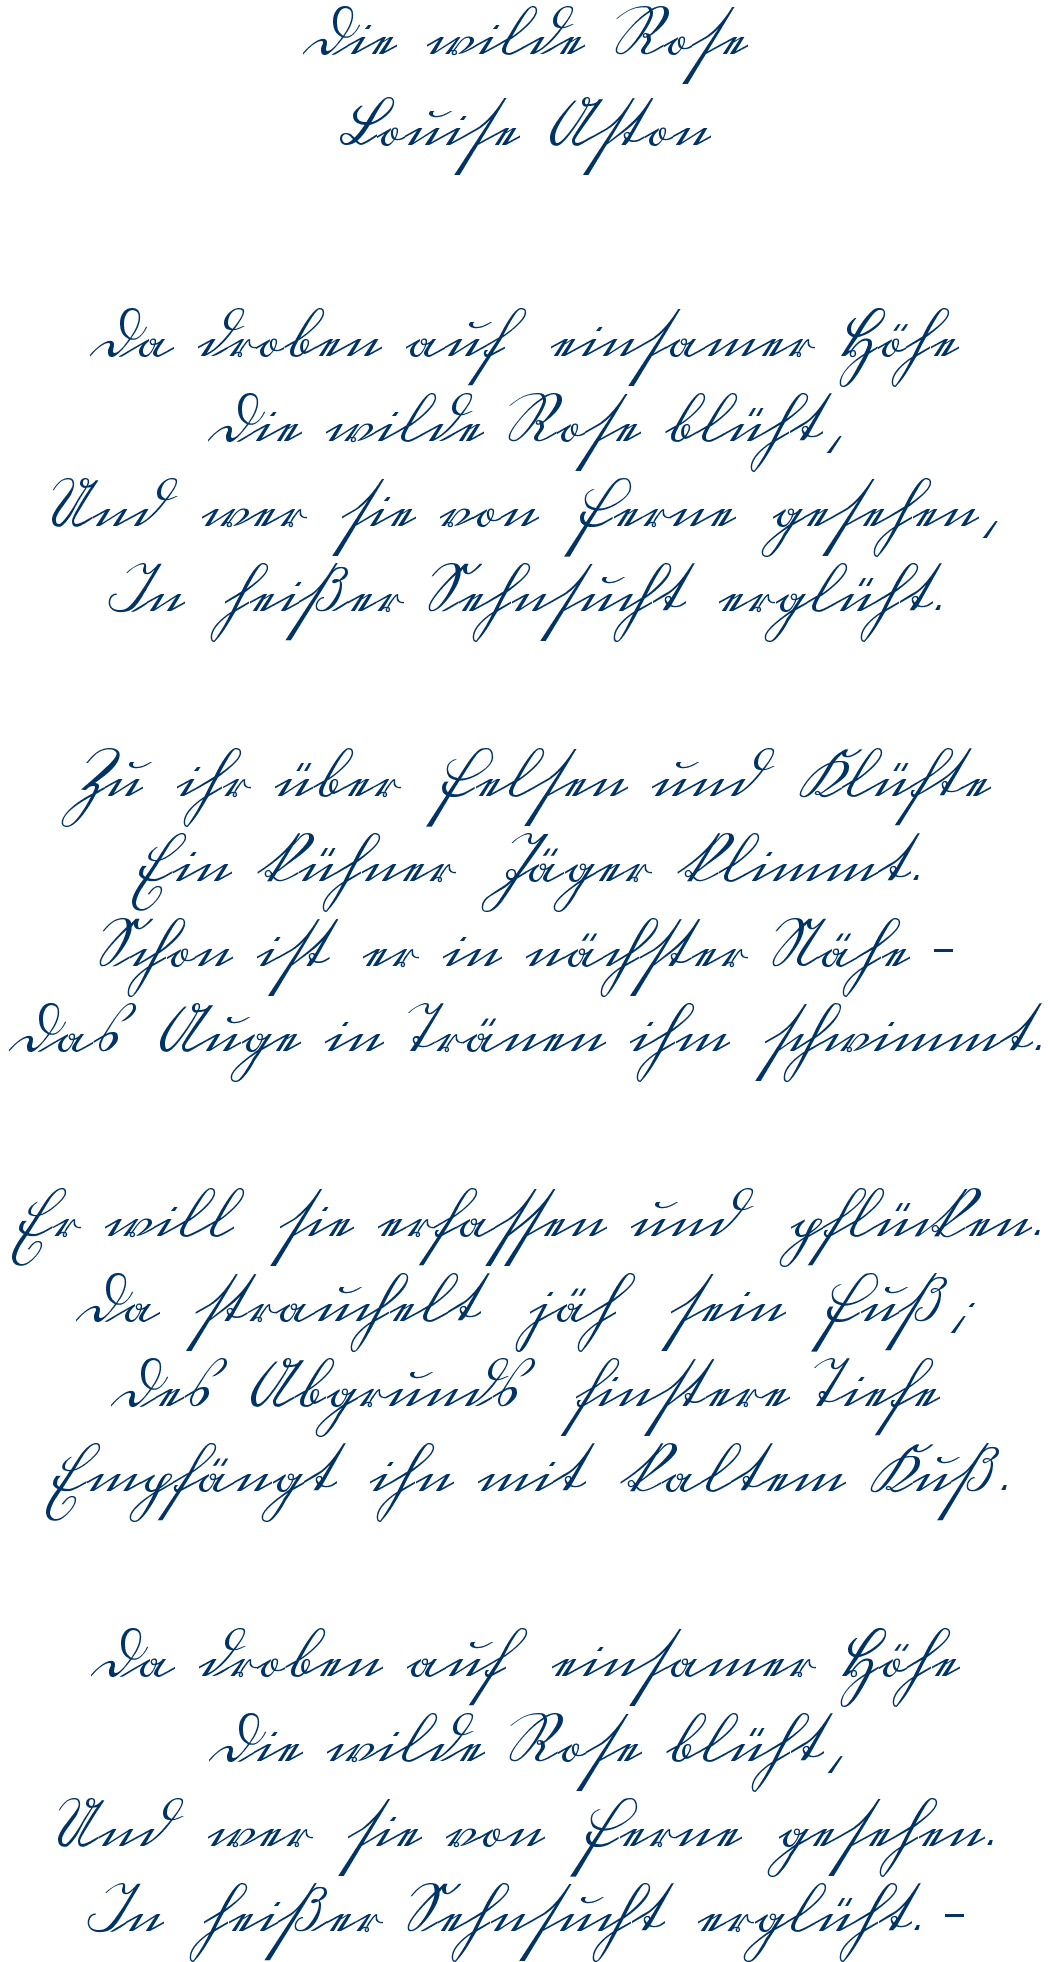 Die wilde Rose
Louise Aston
Da droben auf einsamer Höhe
Die wilde Rose blüht,
Und wer sie von Ferne gesehen,
In heißer Sehnsucht erglüht.
Zu ihr über Felsen und Klüfte
Ein kühner Jäger klimmt.
Schon ist er in nächster Nähe -
Das Auge in Tränen ihm schwimmt.
Er will sie erfassen und pflücken.
Da strauchelt jäh sein Fuß;
Des Abgrunds finstere Tiefe
Empfängt ihn mit kaltem Kuß.
Da droben auf einsamer Höhe
Die wilde Rose blüht,
Und wer sie von Ferne gesehen.
In heißer Sehnsucht erglüht. -